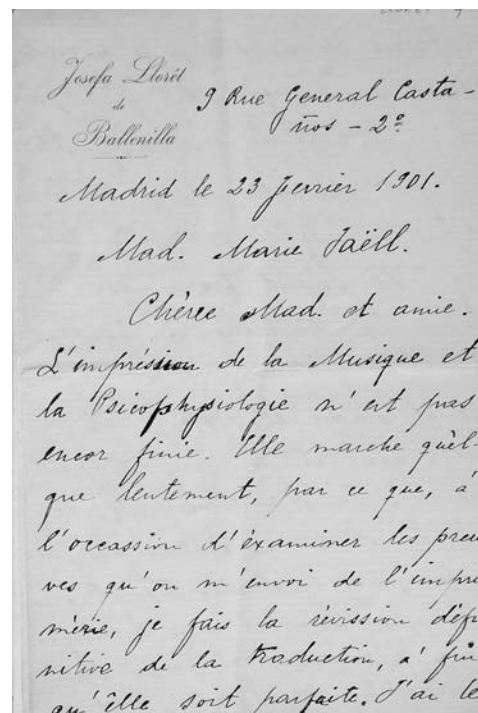 Josefa Llorét
de
Ballenilla
9 Rue General Casta-
ños - 2º
Madrid le 23 fevrier 1901.
Mad. Marie Jaëll.
Chèree Mad. et amie.
L'impréssion de la Musique et
la Psicophysiologie n'est pas
encor finie. Elle marche quèl-
que lentement, par ce que, á
l'occassion d'éxaminer les preu
ves qu'on m'envoi de l'impri
mèrie, je fais la révission défi
nitive de la traduction, á fin
qu'èlle soit parfaite. J'ai le